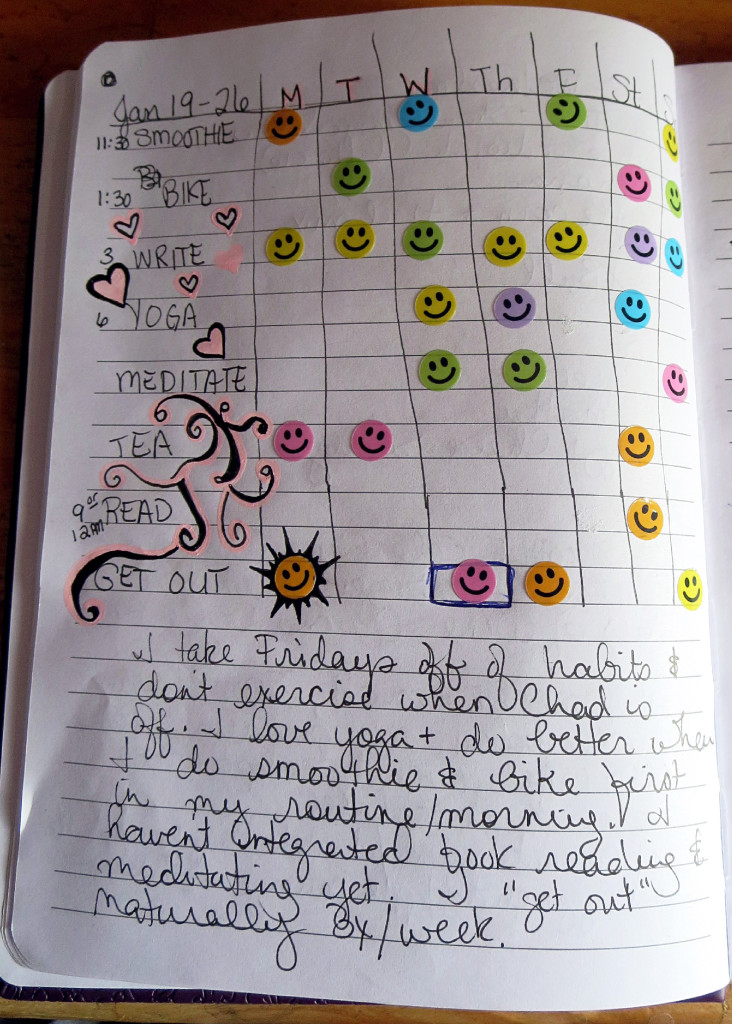 Jan 19-26 M T W Th F St S
11:30 SMOOTHIE
1:30 BIKE
3 WRITE
6 YOGA
MEDITATE
TEA
9 or 12AM READ
GET OUT
I take Fridays off of habits &
dont exercise when Chad is
off. I love yoga + do better when
I do smoothie & bike first
in my routine/morning. I
havent integrated book reading &
meditating yet. I "get out"
naturally 3x/week.